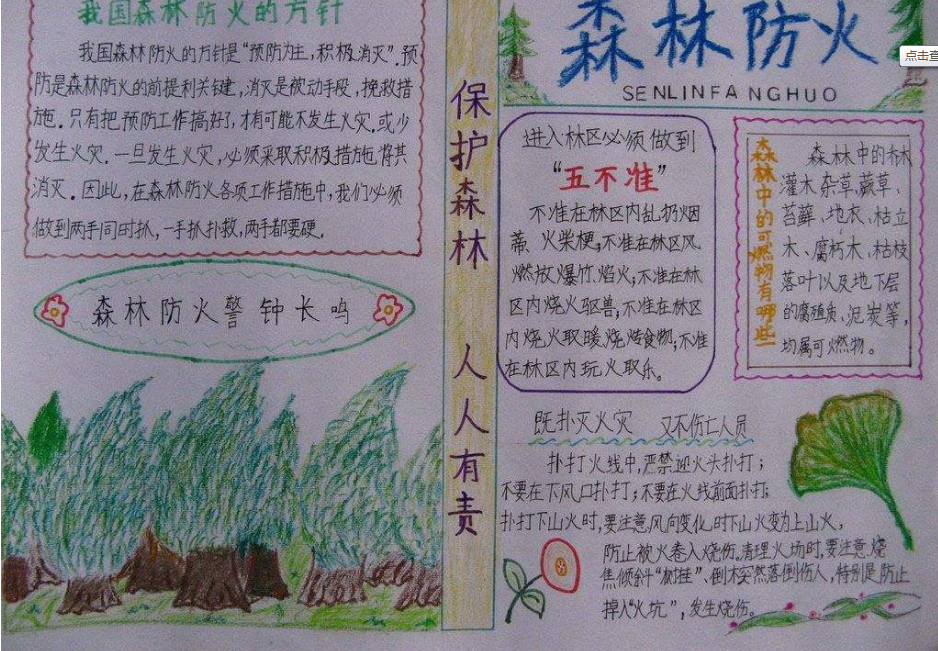 我国森林防火的方针
我国森林防火的方针是“预防为主，积极消灭”，预
防是森林防火的前提利关键，消灭是被动手段，挽救措
施．只有把预防工作搞好了，才有可能不发生火灾．或少
发生火灾．一旦发生火灾，必须采取积极措施将其
消灭．因此，在森林防火各项工作措施中，我们必须
做到两手同时抓，一手抓扑救，两手都要硬．
森林防火警钟长鸣
保护森林 人人有责
森林防火
SENLINFANGHUO
点击查
进入林区必须做到
“五不准”
不准在林区内乱扔烟
蒂、火柴梗；不准在林区风
燃放爆竹、焰火；不准在林
区内烧火驱兽；不准在林区
内烧火取暖、烧烤食物；不准
在林区内玩火取乐。
森林中的可燃物有哪些
森林中的林
灌木、杂草、蕨草、
苔藓、地衣、枯立
木、腐朽木、枯枝
落叶以及地下层
的腐殖质、泥炭等，
均属可燃物。
既扑灭火灾 又不伤亡人员
扑打火线中，严禁迎火头扑打；
不要在下风口扑打；不要在火线前面扑打；
扑打下山火时，要注意风向变化，时下山火变为上山火，
防止被火卷入烧伤。清理火场时，要注意烧
焦倾斜“树挂”、倒木突然落倒伤人，特别是防止
掉入“火坑”，发生烧伤。